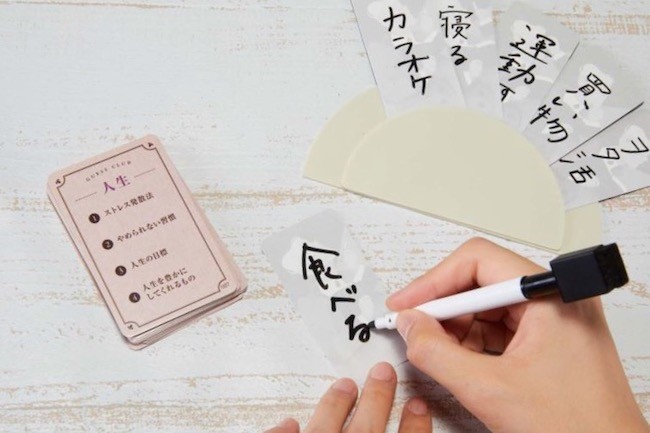 人生
1 ストレス発散法
2 やめられない習慣
3 人生の目標
4 人生を豊かに
してくれるもの
カラオケ
寝る
運動す
買い物
ヲタ活
食べる